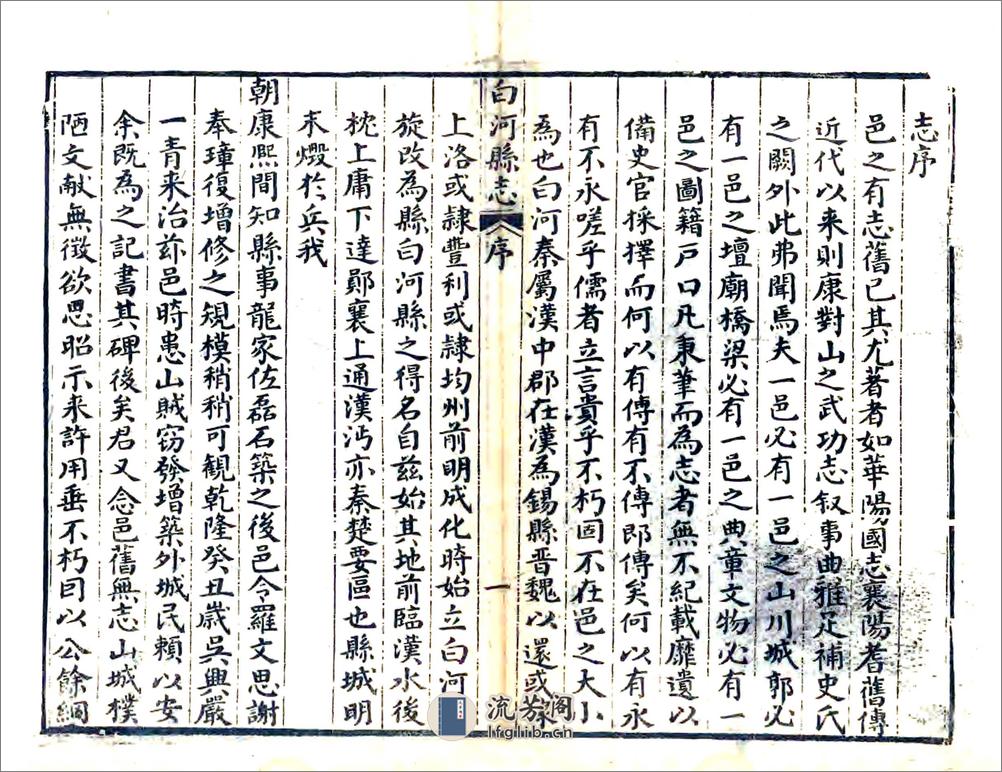 志序
邑之有志舊已其尤著者如華陽國志襄陽耆舊傳
近代以来則康對山之武功志叙事典雅足補史氏
之闕外此弗聞焉夫一邑必有一邑之山川城郭必
有一邑之壇廟橋梁必有一邑之典章文物必有一
邑之圖籍户口凡秉筆而為志者無不紀載靡遺以
備史官採擇而何以有傳有不傳即傳矣何以有永
有不永嗟乎儒者立言貴乎不朽固不在邑之大小
為也白河秦屬漢中郡在漢為錫縣晋魏以還或
上洛或隷豐利或隷均州前明成化時始立白河
旋改為縣白河縣之得名自兹始其地前臨漢水後
枕上庸下達鄖襄上通漢沔亦秦楚要區也縣城明
末燬於兵我
朝康熙間知縣事龍家佐磊石築之後邑令羅文思謝
奉璋復增修之規模稍稍可觀乾隆癸丑歲吳興嚴
一青来治茲邑時患山賊窃發增築外城民頼以安
余既為之記書其碑後矣君又念邑舊無志山城樸
陋文献無徵欲思昭示来許用垂不朽囙以公餘綱
白河縣志 序 一
流芳阁
lfglib.cn